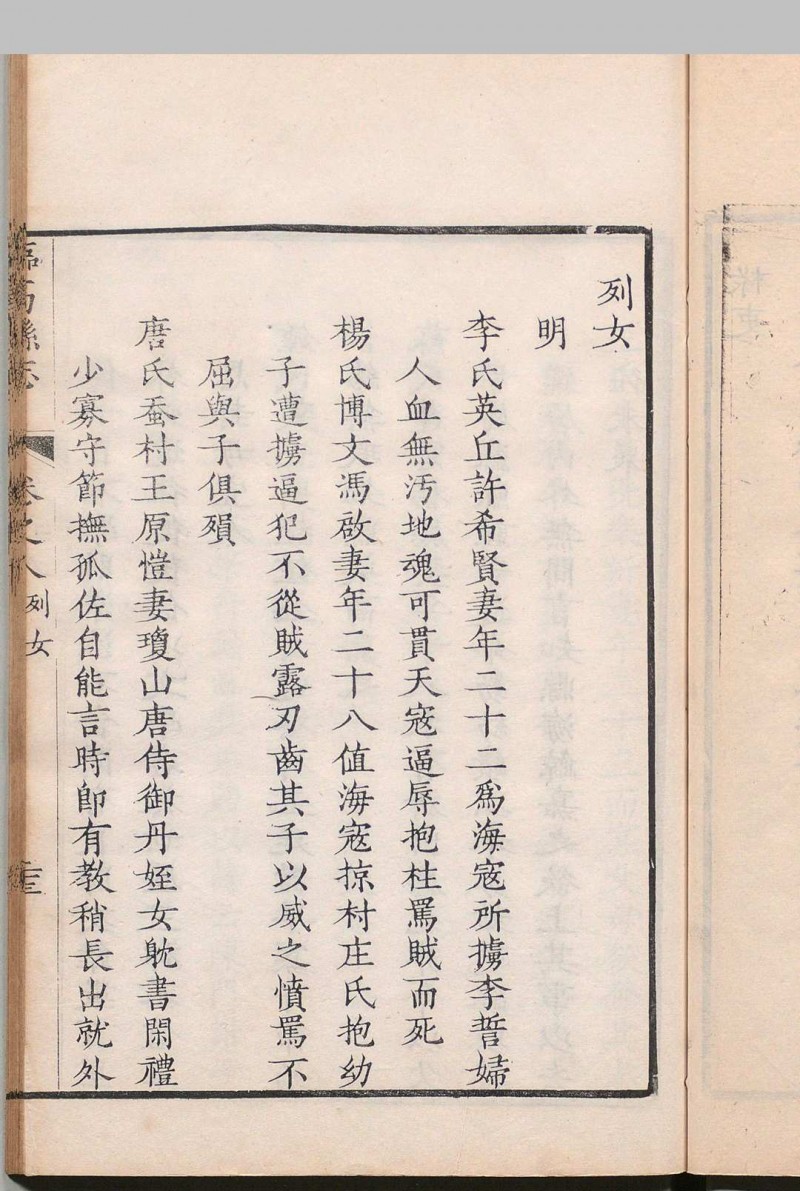 列女
明
李氏英丘許希賢妻年二十二爲海寇所擄李誓婦
人血無汚地魂可貫天寇逼辱抱柱罵賊而死
楊氏博文馮啟妻年二十八值海寇掠村庄氏抱幼
子遭擄逼犯不從賊露刃齒其子以威之憤罵不
屈與子俱殞
唐氏蚕村王原愷妻瓊山唐侍御丹姪女躭書閑禮
少寡守節撫孤佐自能言時卽有教稍長出就外
臨高縣志 卷之八 列女